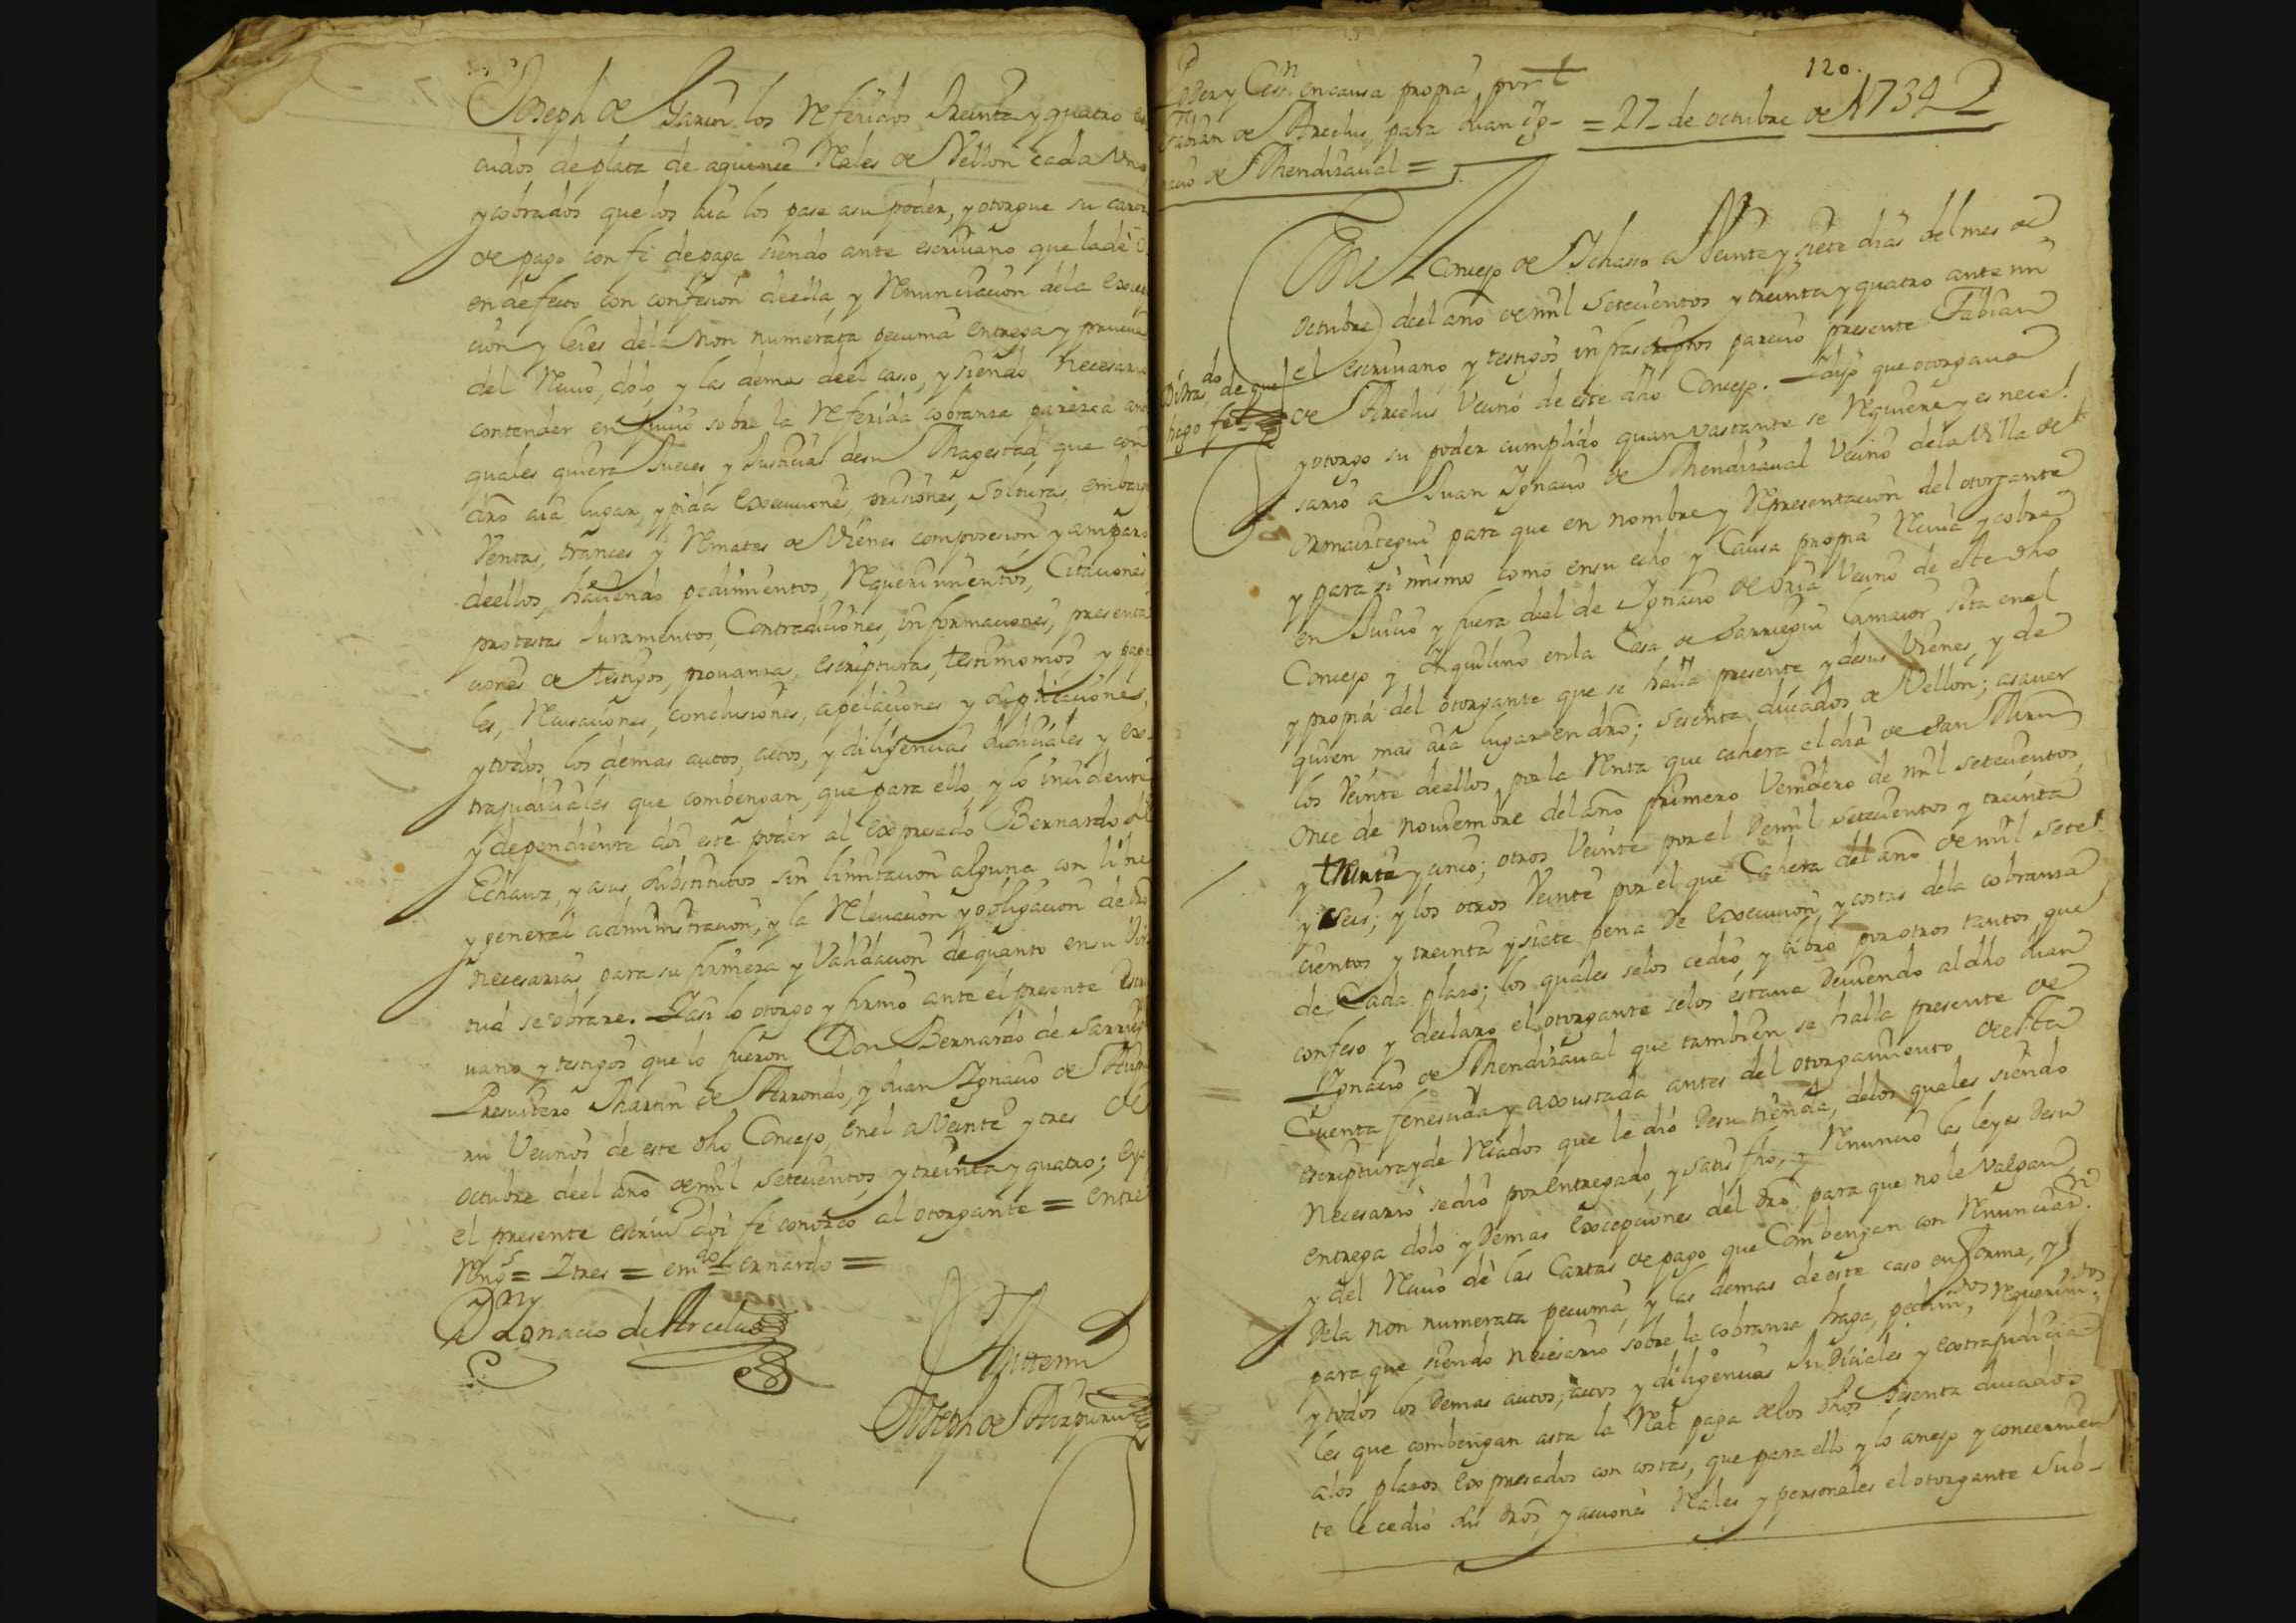 Joseph de Garin los referidos treinta y quatro es
cudos de plata de aquince Reales de Vellon cada Uno,
y cobrados que los aia los pase asu poder, y otorgue su carta
de pago con fe de paga siendo ante escriuano que la dê ô
en defecto con confesion deella, y Renunciacion dela excep
cion y leies dela non numerata pecunia entrega y prueua
del Reciuo, dolo, y las demas deel casso, y siendo necesario
contender en Juicio sobre la referida cobranza parezca ante
quales quiera Jueces y Justicias desu Magestad que con
dro aia lugar, y pida execuciones, prisiones, solturas, embargos
Ventas, trances y Remates de Vienes con posesion y amparo
deellos, haciendo pedimientos, Requerimientos, Citaciones,
protestas Juramentos, Contradiciones, informaciones, presenta
ciones de testigos, prouanzas, escripturas, testimonios y pape
les, Recusaciones, conclusiones, apelaciones y suplicaciones,
y todos los demas autos, actos, y diligencias Judiciales y ex-
trajudiciales que combengan, que para ello, y lo incidente
y dependiente doi este poder al expresado Bernardo de
Echauz, y asus substitutos sin limitacion alguna con libre
y general administracion, y la Releuacion y obligacion de dro
necesarias para su firmeza y Validacion de quanto en su Vir
tud se obrare. I asi lo otorgo y firmo ante el presente escri
uano y testigos que lo fueron Don Bernardo de Sarriegui
Presuitero Martin de Arrondo, y Juan Ignacio de Aizpu
ru Vecinos de este dho Concejo, en el a Veinte y tres de
octubre deel año de mil setecientos y treinta y quatro; e yo
el presente escriuº doi fe conozco al otorgante = entre
Rengs = I tres = emdo = ernardo =
Dn Ignacio de Arcelus
Antemi
Joseph de Aizpuru
120.
Poder y Cesn. en causa propia, por
Fabian de Arcelus, para Juan Ig-
nacio de Mendizaual =
= 27 - de octubre de 1734
En el Concejo de Ichasso a Veinte y siete dias del mes de
octubre deel año de mil setecientos y treinta y quatro ante mi
el escriuano y testigos infrascriptos parecio presente Fabian
de Arcelus Vecino de este dho Concejo. I dijo que otorgaua
y otorgo su poder cumplido quan vastante se Requiere y es nece-
sario a Juan Ignacio de Mendizaual Vecino dela Villa de
Ormaiztegui para que en nombre y Representacion del otorgante
y para si mismo como en su echo y Causa propia Reciua y cobre
en Juicio y fuera deel de Ignacio de oria Vecino de este dho
Concejo y Inquilino en la Casa de Sarriegui la maior sita en el
y propia del otorgante que se halla presente y desus Vienes, y de
quien mas aia lugar en dro; sesenta ducados de Vellon; asauer
los Veinte deellos por la Renta que cahera el dia de San Martin
once de nouiembre del año primero Venidero de mil setecientos,
y treinta y cinco; otros Veinte por el de mil setecientos y treinta
y seis; y los otros Veinte por el que Cahera del año de mil sete-
cientos y treinta y siete pena de execucion, y costas dela cobranza
de Cada plazo; los quales selos cedio y libro por otros tantos que
confeso y declaro el otorgante selos estaua deuiendo al dho Juan
Ignacio de Mendizaual que tambien se halla presente de
Cuenta fenescida y axustada antes del otorgamiento deesta
escriptura y de Reados que le dio desu tienda, delos quales siendo
necesario se dio por entregado, y satisfho, y Renuncio las leyes desu
entrega dolo y demas excepciones del dro, para que no le Valgan
y del Reciuo dé las Cartas de pago que Combengan con Renunciazn
dela non numerata pecunia, y las demas de este caso en forma, y
para que siendo necesario sobre la cobranza haga, pedimtos, requerimtos,
y todos los demas autos, actos y diligencias Judiciales y extrajudicia-
les que combengan asta la Real paga delos dhos sesenta ducados
alos plazos expresados con costas, que para ello y lo anejo y concernien
te le cedio sus dros, y acciones Reales y personales el otorgante sub-